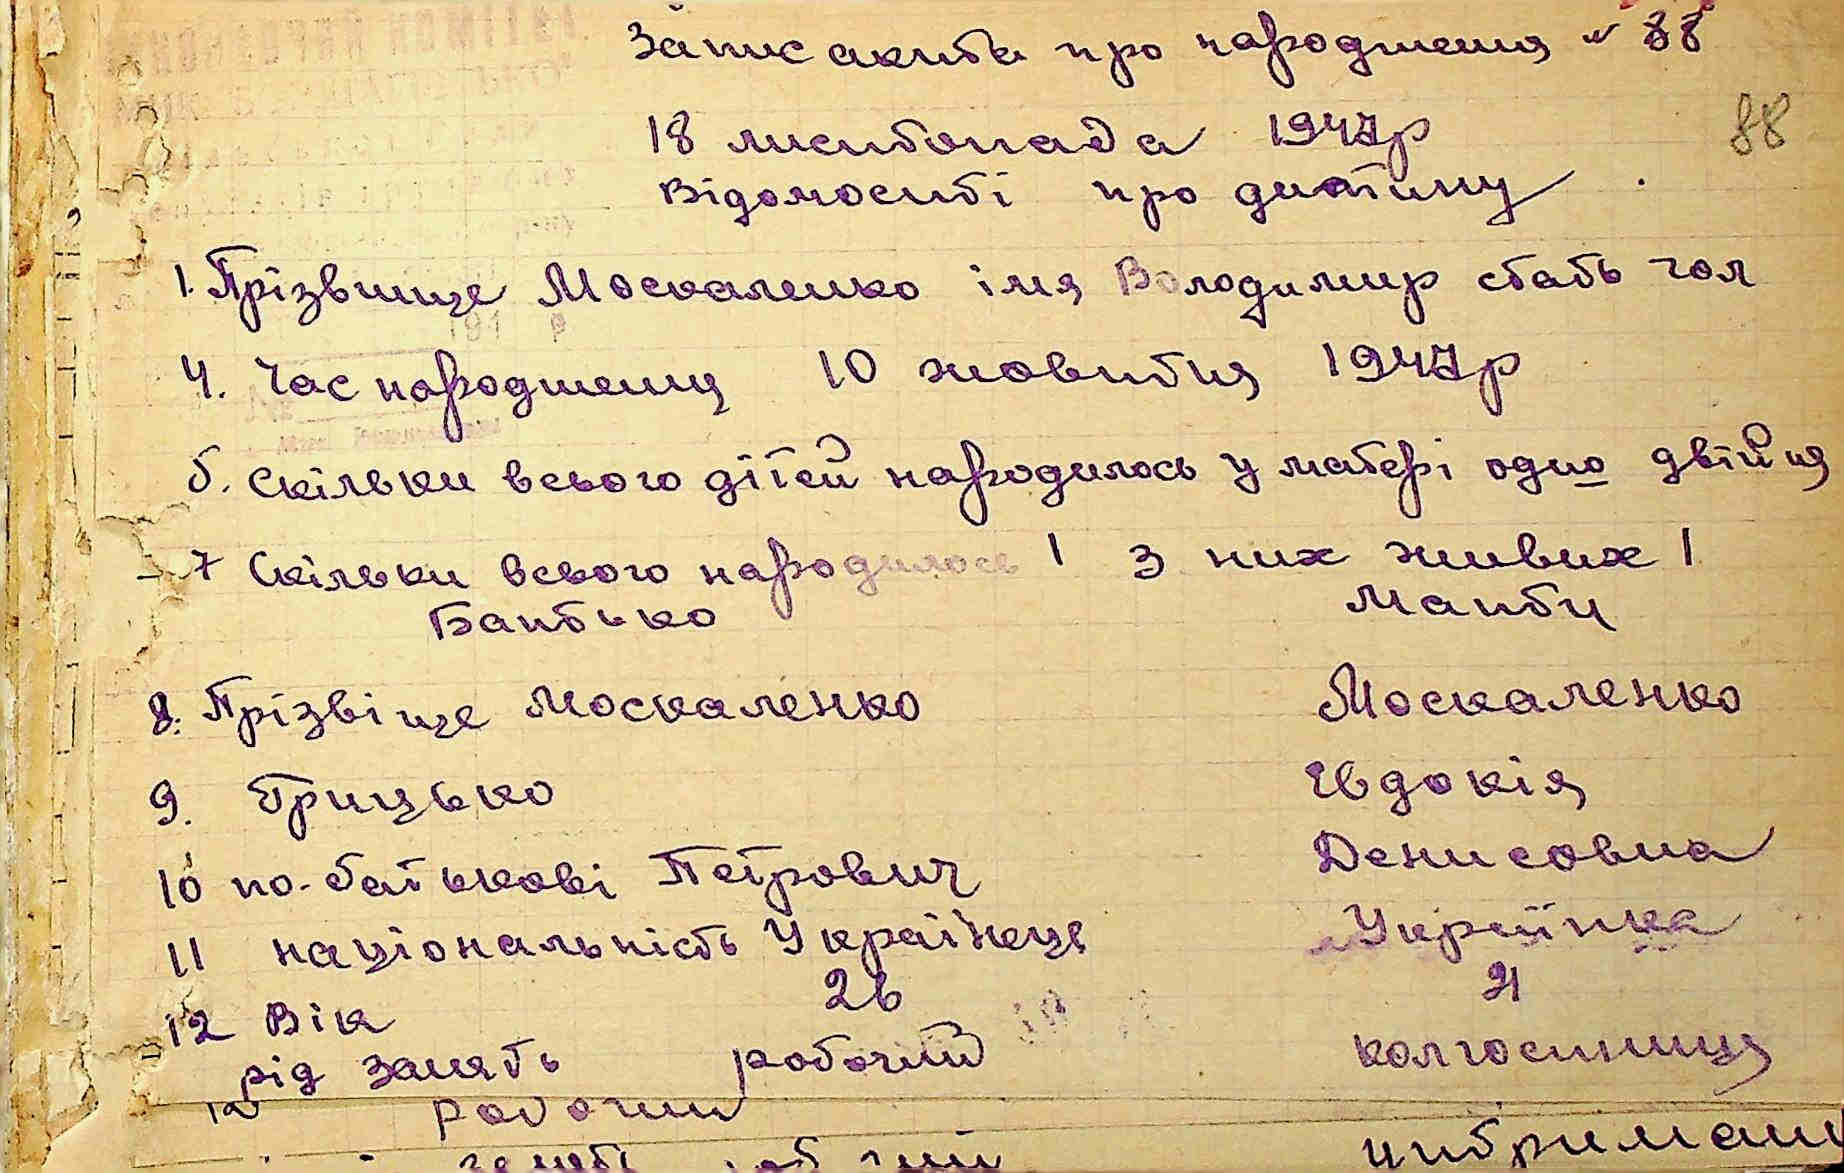 Запис акта про народження № 88
88
18 листопада 1947р
Відомості про дитину
1. Прізвище Москаленко імя Володимир стать чол
4. Час народження 10 жовтня 1947р
5. Скільки всього дітей народилось у матері одно двійня
7 Скільки всього народилось 1 з них живих 1
Батько Мати
8. Прізвіще Москаленко Москаленко
9. Грицько Євдокія
10 по-батькові Петрович Денисовна
11 національність Українець Українка
12 Вік 26 21
рід занять робочий колгоспниця
робочий